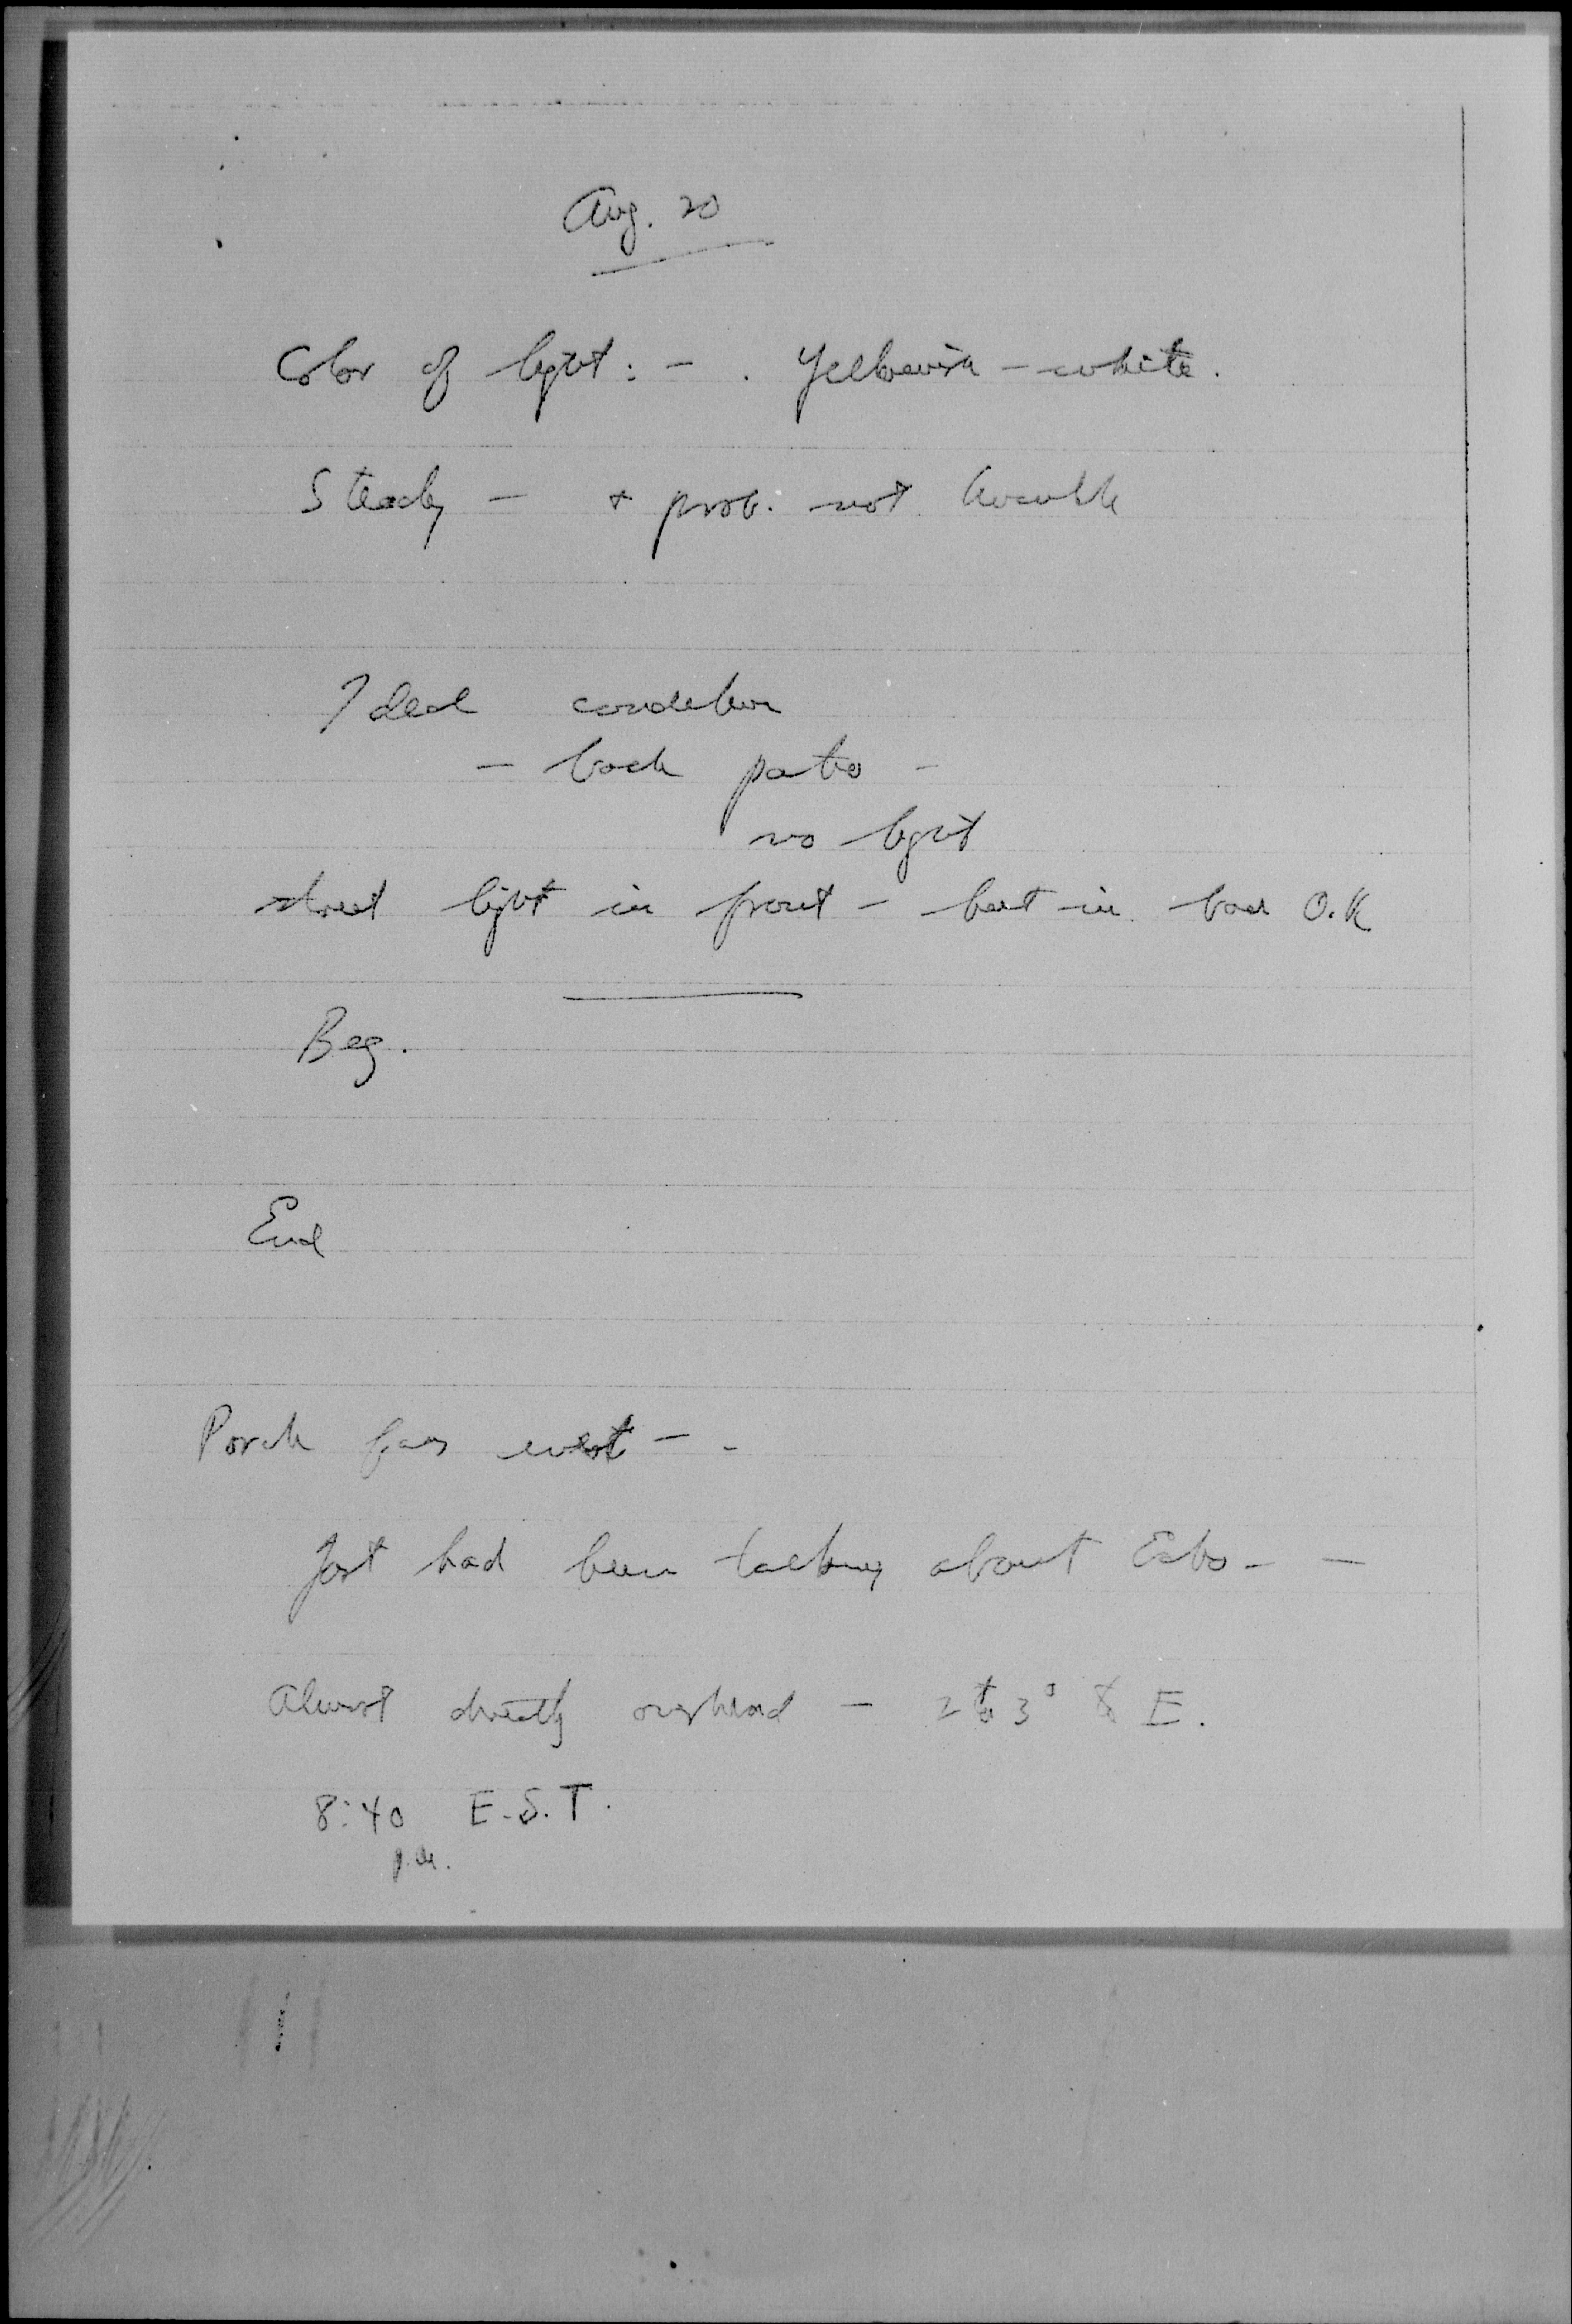 Aug. 20
Color of light: - . Yellowish - white.
Steady - + prob. not
Ideal condition
- back patio -
no light
street light in front - but in back O.K
Beg.
End
Porch faces west - -
Just had been talking about Echo - -
Almost directly overhead - 2 to 3° to E.
8:40 E.S.T.
p.m.